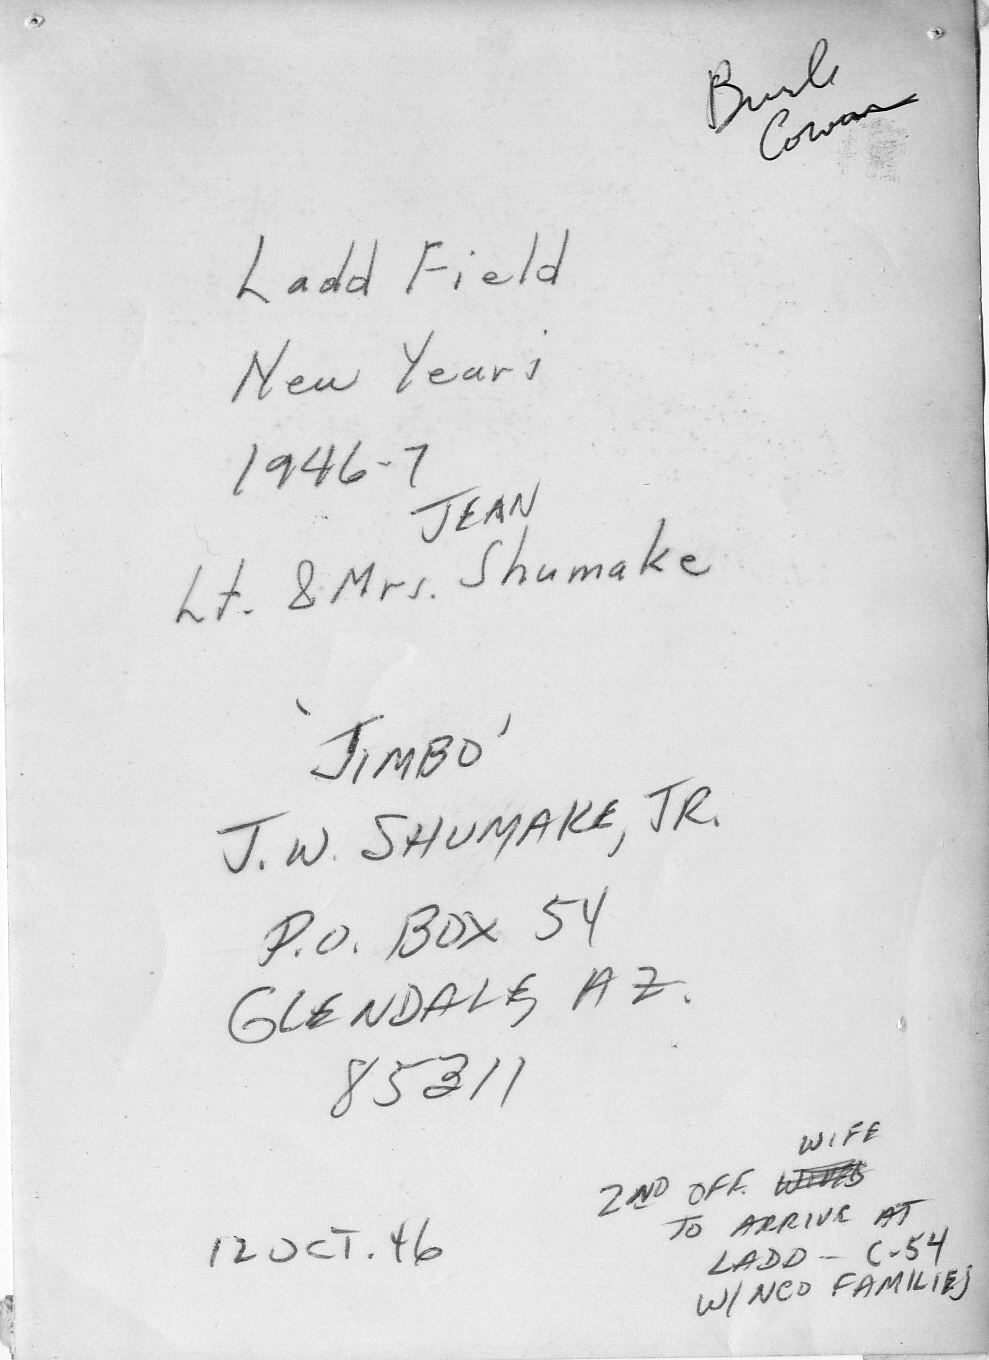 Burl
Cowan
Ladd Field
New Years
1946-7
JEAN
Lt. & Mrs. Shumake
'JIMBO'
J. W. SHUMAKE, JR.
P.O. BOX 54
GLENDALE, AZ.
85311
WIFE
2ND OFF. WIVES
TO ARRIVE AT
LADD - C-54
W/NCO FAMILIES
12 OCT. 46